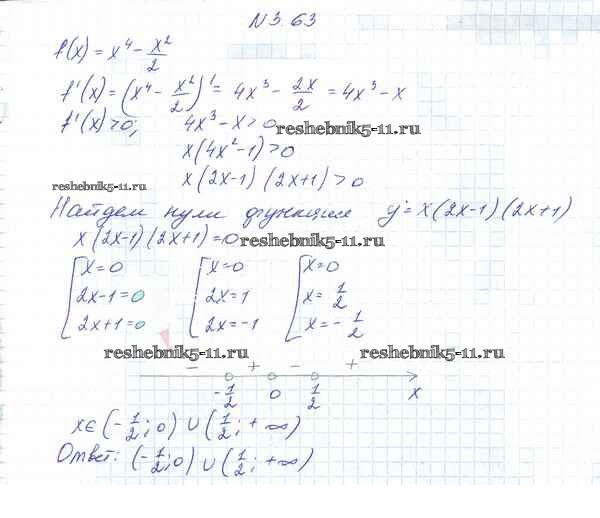 N3.63
f(x) = x⁴ - x²/2
f'(x) = (x⁴ - x²/2)' = 4x³ - 2x/2 = 4x³ - x
f'(x)>0; 4x³ - x > 0
reshebnik5-11.ru
x(4x² - 1) > 0
x(2x-1)(2x+1) > 0
reshebnik5-11.ru
Найдем нули функции y = x(2x-1)(2x+1)
x(2x-1)(2x+1) = 0
reshebnik5-11.ru
[x = 0 [x = 0 [x = 0
2x-1 = 0 2x = 1 x = 1/2
2x+1 = 0 2x = -1 x = - 1/2
reshebnik5-11.ru reshebnik5-11.ru
- + - +
-1/2 0 1/2 x
x ∈ (-1/2; 0) ∪ (1/2; +∞)
Ответ: (-1/2; 0) ∪ (1/2; +∞)